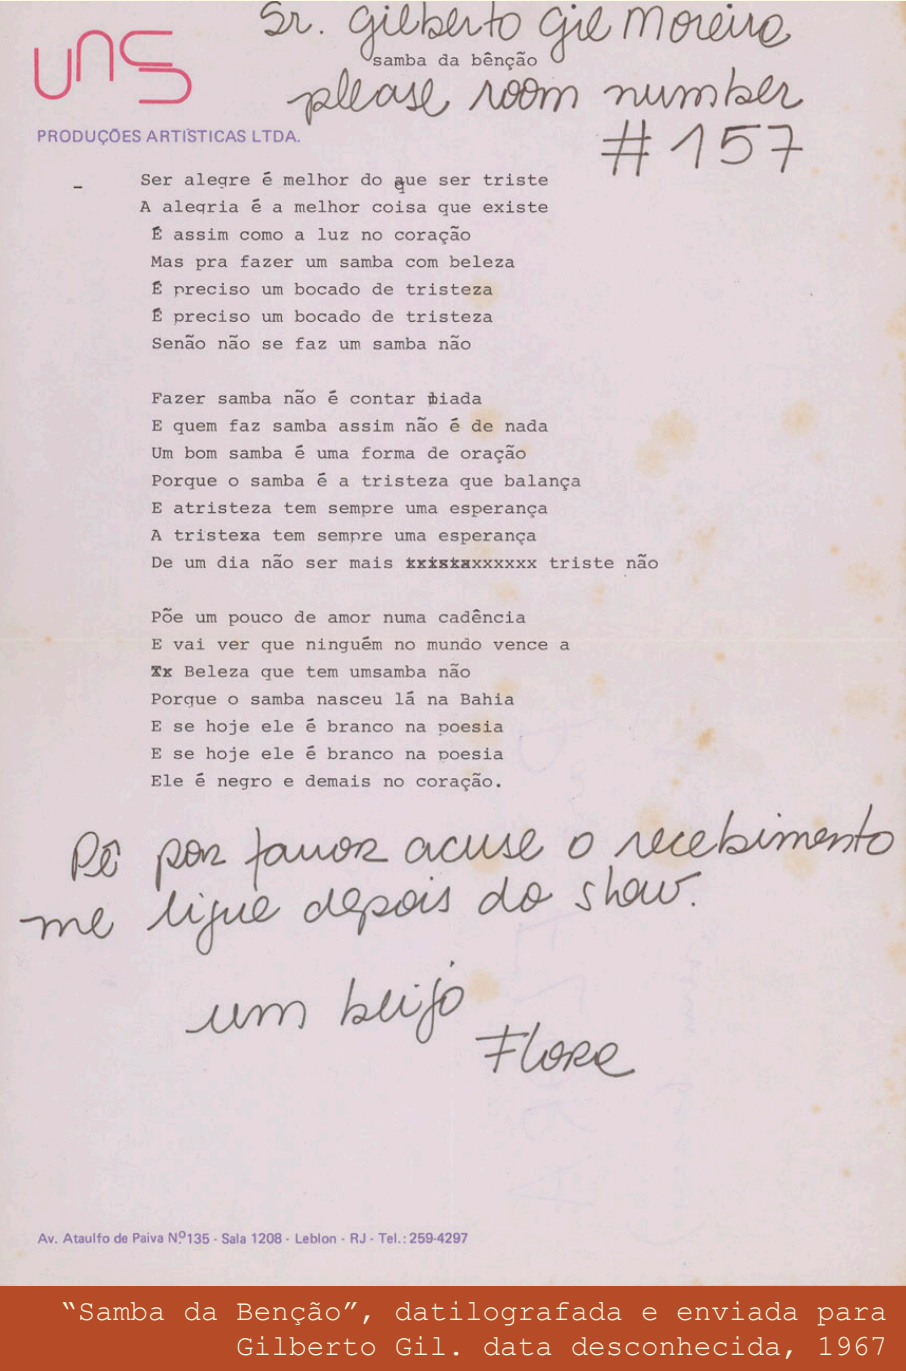 Sr. Gilberto Gil Moreira
uns
samba da bênção
please room number
PRODUÇÕES ARTÍSTICAS LTDA.
# 157
Ser alegre é melhor do que ser triste
A alegria é a melhor coisa que existe
É assim como a luz no coração
Mas pra fazer um samba com beleza
É preciso um bocado de tristeza
É preciso um bocado de tristeza
Senão não se faz um samba não
Fazer samba não é contar piada
E quem faz samba assim não é de nada
Um bom samba é uma forma de oração
Porque o samba é a tristeza que balança
E atristeza tem sempre uma esperança
A tristexa tem sempre uma esperança
De um dia não ser mais xxxxxx triste não
Põe um pouco de amor numa cadência
E vai ver que ninguém no mundo vence a
Beleza que tem umsamba não
Porque o samba nasceu lá na Bahia
E se hoje ele é branco na poesia
E se hoje ele é branco na poesia
Ele é negro e demais no coração.
Pê por favor acuse o recebimento
me ligue depois do show.
um beijo
Flora
Av. Ataulfo de Paiva Nº 135 - Sala 1208 - Leblon - RJ - Tel.: 259-4297
“Samba da Benção”, datilografada e enviada para
Gilberto Gil. data desconhecida, 1967